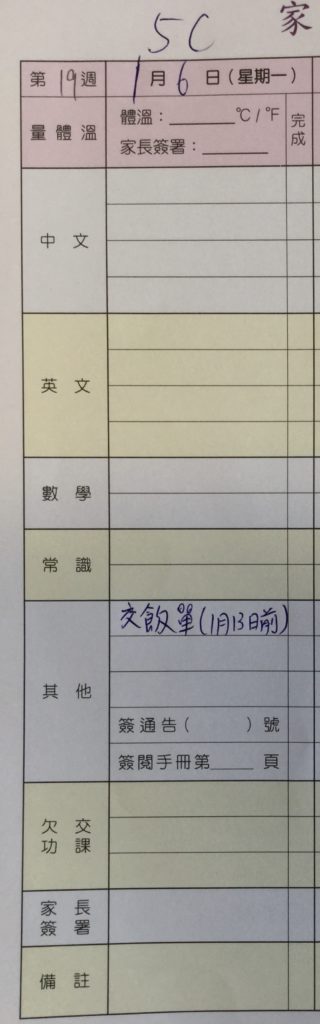 5C
家
第19週 1月6日(星期一)
量體溫 體溫：______°C/°F 完成
家長簽署：______
中文
英文
數學
常識
其他 交飯單(1月13日前)
簽通告( )號
簽閱手冊第____頁
欠交功課
家長簽署
備註